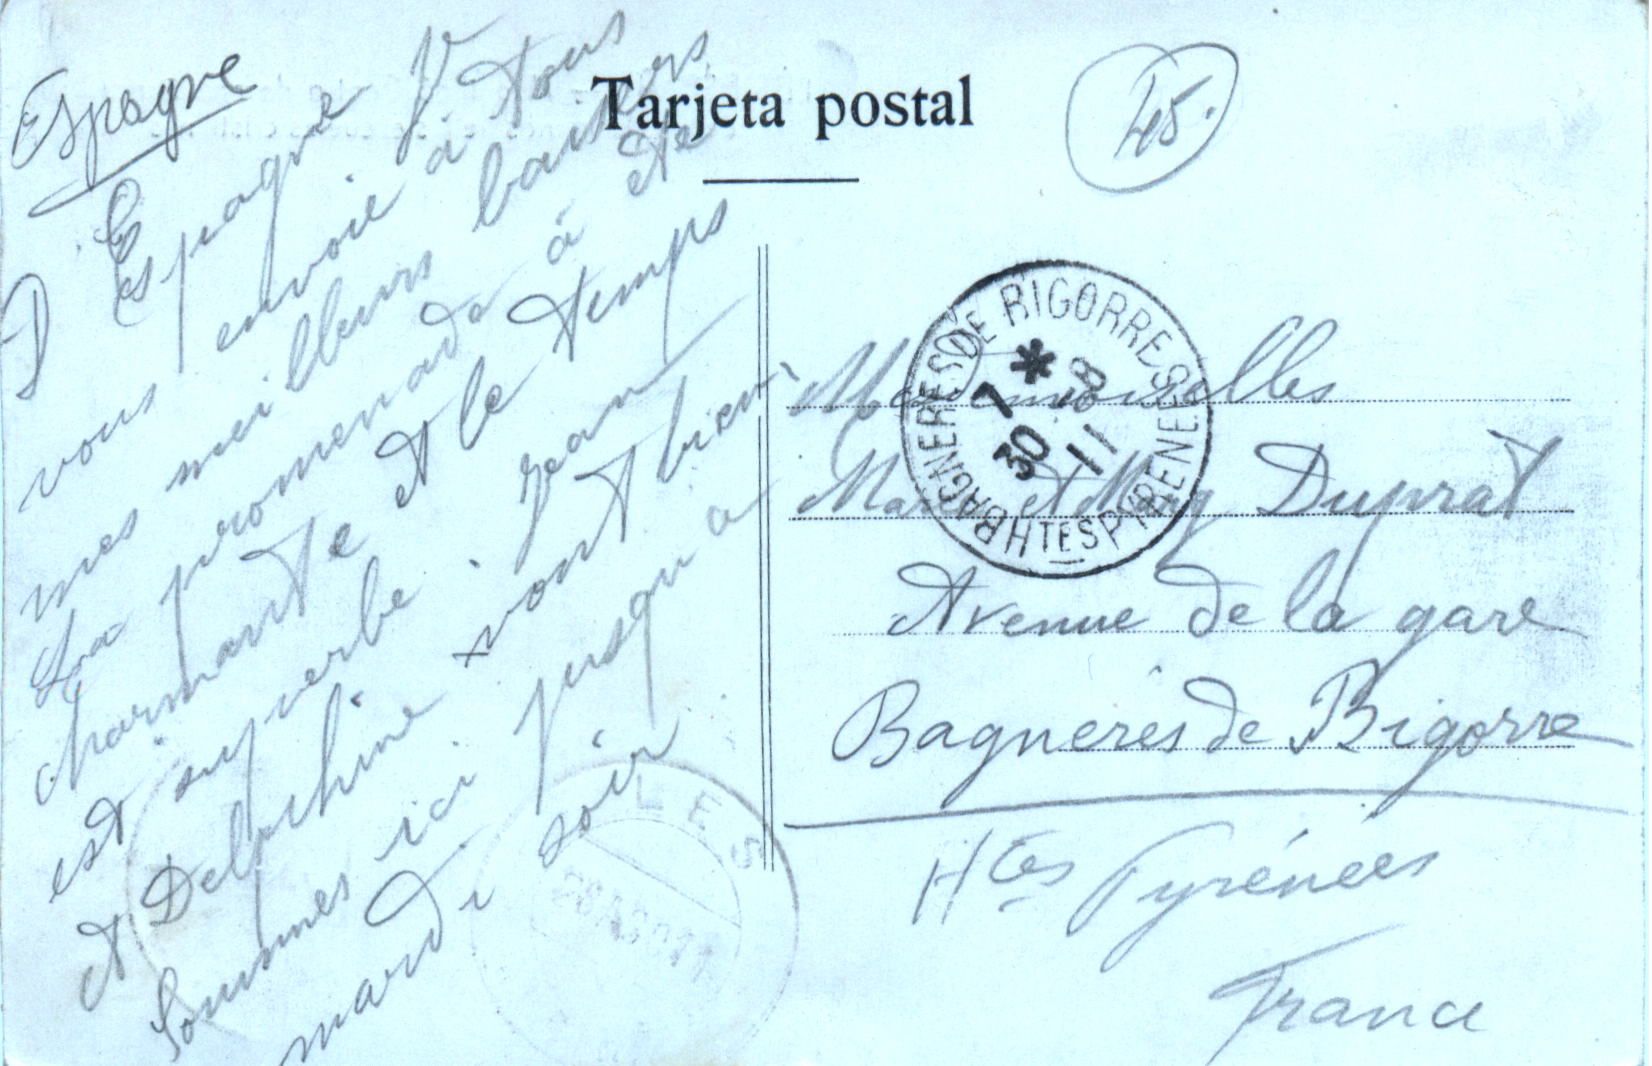 Tarjeta postal
45.
Espagne
D'Espagne je
vous envoie à tous
mes meilleurs baisers
La promenade à été
charmante et le temps
est superbe. Jean
et Delphine vont bien,
Sommes ici jusqu'a
mardi soir
BAGNERES DE BIGORRE
HTES PYRENEES
30 7 * 8
11
LES
Mesdemoiselles
et Duprat
Avenue de la gare
Bagnères de Bigorre
Htes Pyrénées
France